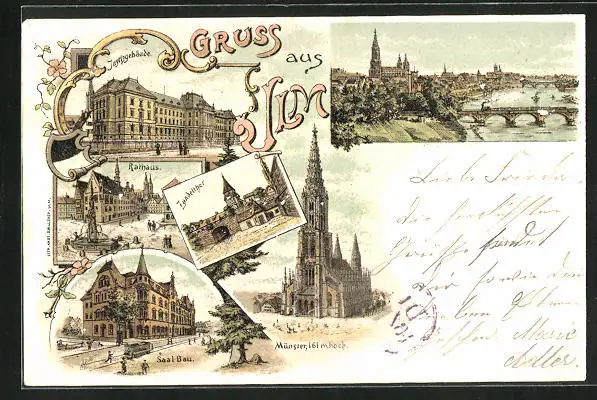 GRUSS aus
ULM
Justizgebäude.
Rathaus.
Zundelthor
Saal Bau.
Münster, 161 m hoch.
Liebe Frieda.
die herzlichsten
Grüße sendet
dir sowie den
lieben Eltern
Marie
Adler.